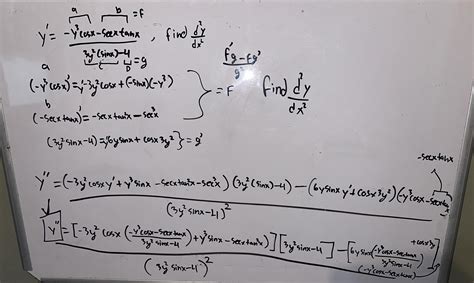 a b = F
y' = -y³cosx - secx tanx / 3y²(sinx)-4 , find d²y/dx²
C D = g
a
(-y³cosx)' = y'-3y²cosx + (-sinx)(-y³)
f'g - fg' / g²
b
(-secx tanx)' = -secx tan²x - sec³x
= F find d²y/dx²
(3y²sinx-4) = 6y sinx + cosx 3y² } = g'
-secx tanx
y'' = (-3y²cosx y' + y³sinx - secx tan²x - sec³x)(3y²(sinx)-4) - (6y sinx y' + cosx 3y²)(-y³cosx - secx tanx) / (3y²sinx-4)²
+cosx 3y
y'' = [-3y² cosx (-y³cosx - secx tanx / 3y²sinx-4) + y³sinx - secx tan²x)] [3y²sinx-4] - [6y sinx (-y³cosx - secx tanx / 3y²sinx-4)
(-y³cosx - secx tanx)
(3y²sinx-4)²